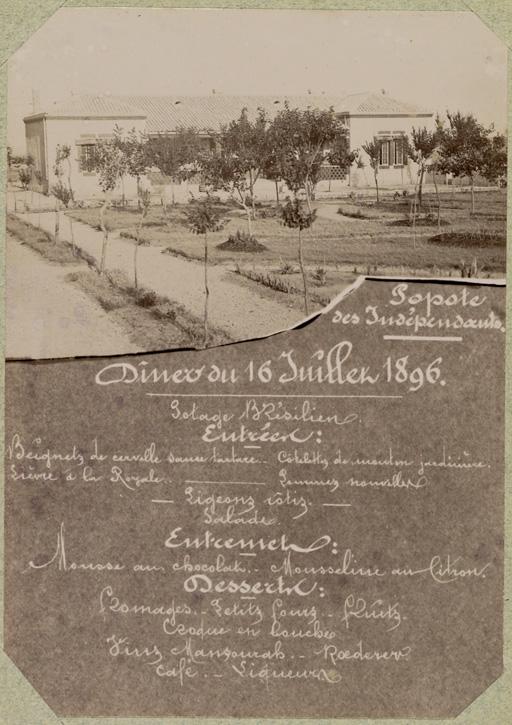 Popote
des Indépendants.
Dîner du 16 Juillet 1896.
Potage Brésilien.
Entrées:
Beignets de cervelle sauce tartare.. Côtelettes de mouton jardinière.
Lièvre à la Royale. Pommes nouvelles
Pigeons rôtis.
Salade.
Entremets:
Mousse au chocolat.. Mousseline au Citron.
Desserts:
fromages.. Petits fours.. fruits.
Croque en bouche
Vins Mansourah.. Rœderer
Café.. Liqueurs